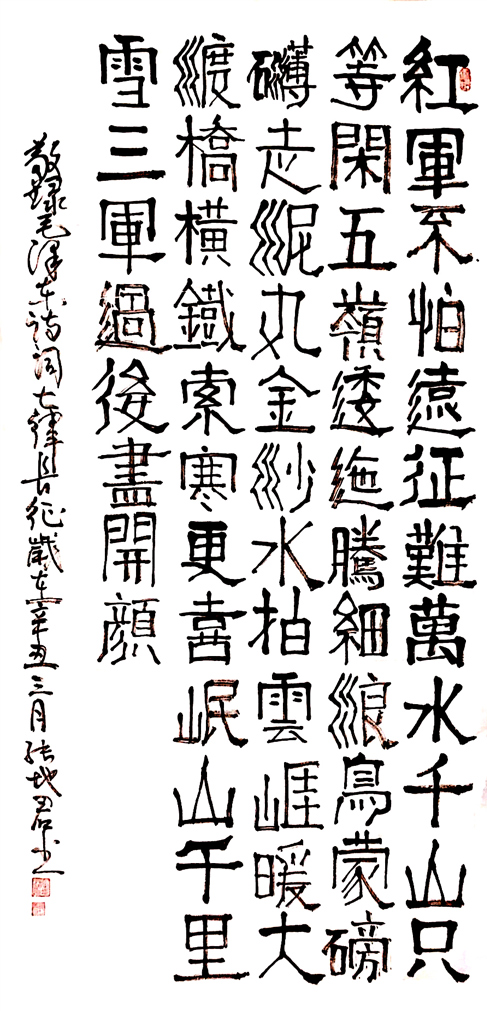 紅軍不怕遠征難萬水千山只
等閑五嶺逶迤騰細浪烏蒙磅
礴走泥丸金沙水拍雲崖暖大
渡橋橫鐵索寒更喜岷山千里
雪三軍過後盡開顔
敬錄毛泽东诗词七律長征歲在辛丑三月张地君书